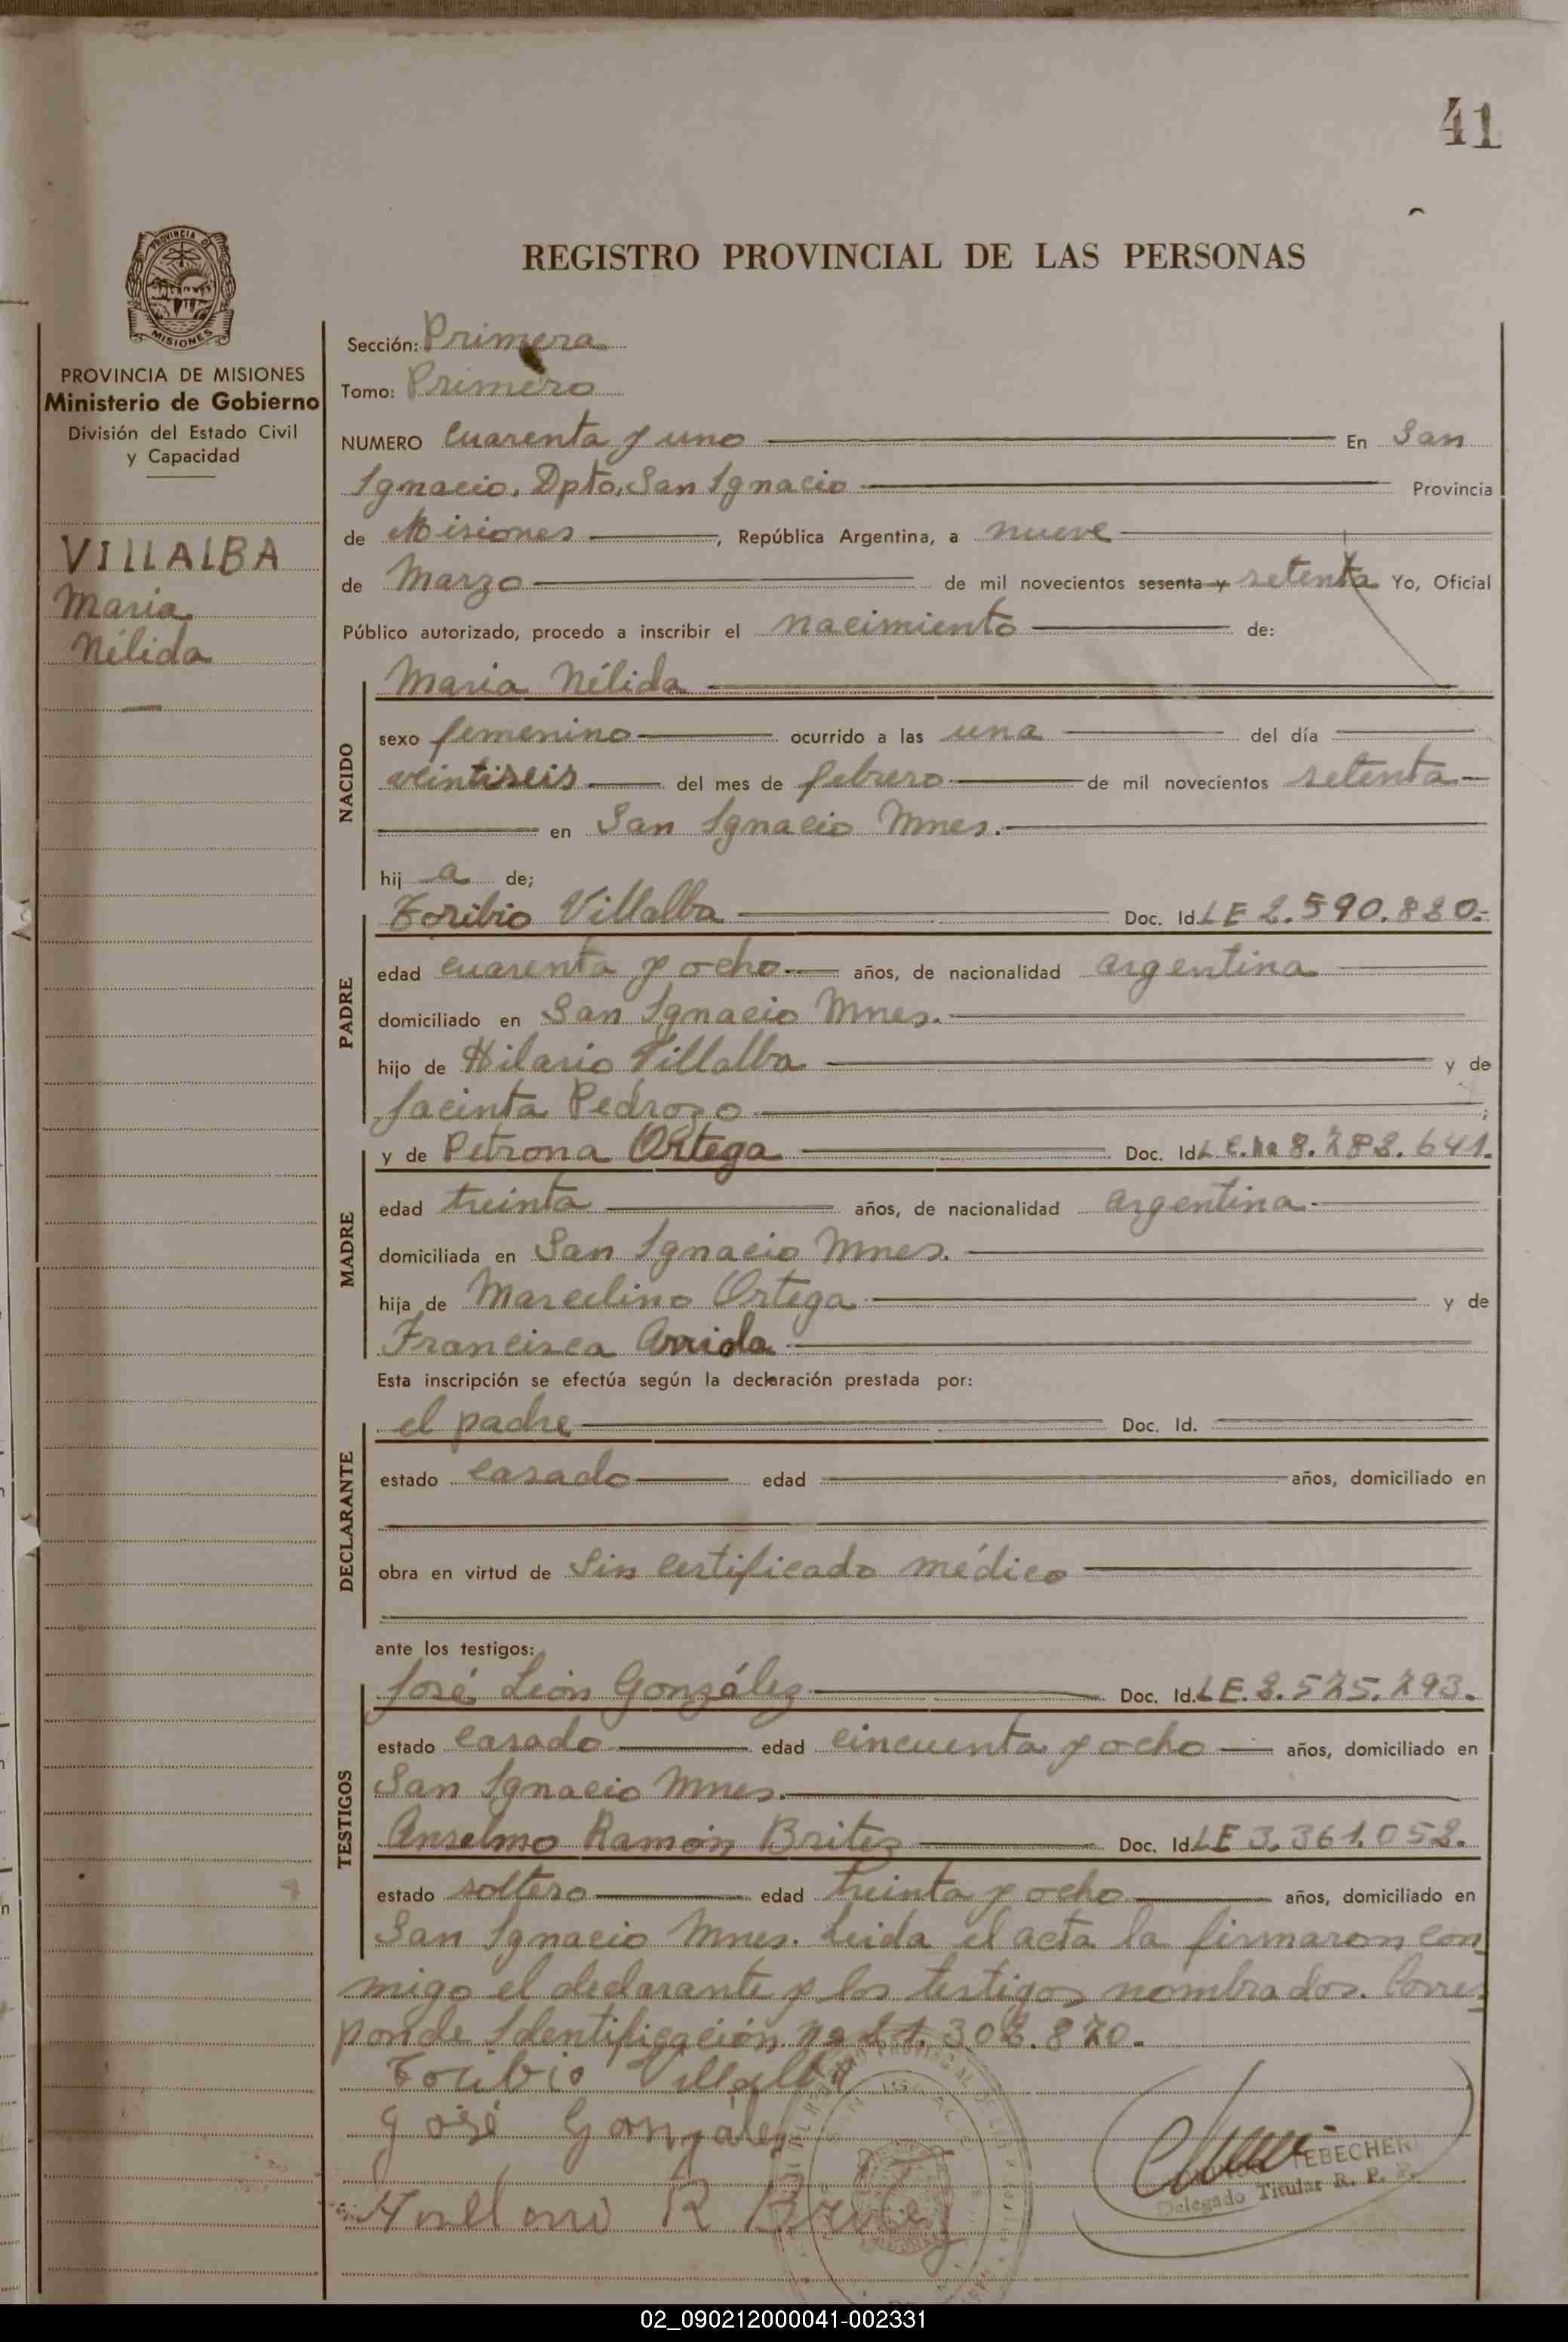 41
REGISTRO PROVINCIAL DE LAS PERSONAS
MISIONES
PROVINCIA DE MISIONES
Ministerio de Gobierno
División del Estado Civil
y Capacidad
VILLALBA
Maria
Nélida
Sección: Primera
Tomo: Primero
NUMERO Cuarenta y uno En San
Ignacio, Dpto, San Ignacio Provincia
de Misiones, República Argentina, a nueve
de Marzo de mil novecientos sesenta y setenta Yo, Oficial
Público autorizado, procedo a inscribir el nacimiento de:
NACIDO
Maria Nélida
sexo femenino ocurrido a las una del día
veintiseis del mes de febrero de mil novecientos setenta
en San Ignacio Mnes.
hij a de;
PADRE
Toribio Villalba Doc. Id. LE 2.590.820.
edad cuarenta y ocho años, de nacionalidad argentina
domiciliado en San Ignacio Mnes.
hijo de Hilario Villalba y de
Jacinta Pedrozo;
MADRE
y de Petrona Ortega Doc. Id.
edad treinta años, de nacionalidad argentina
domiciliada en San Ignacio Mnes.
hija de Marcelino Ortega y de
Francisca Arriola
Esta inscripción se efectúa según la declaración prestada por:
DECLARANTE
el padre Doc. Id.
estado casado edad años, domiciliado en
obra en virtud de Sin Certificado médico
ante los testigos:
TESTIGOS
José León González Doc. Id. LE.
estado casado edad cincuenta y ocho años, domiciliado en
San Ignacio Mnes.
Anselmo Ramón Brites Doc. Id. LE 3.361.052.
estado soltero edad treinta y ocho años, domiciliado en
San Ignacio Mnes. Leida el acta la firmaron con
migo el declarante y los testigos nombrados. Corres
ponde Identificación no
Toribio Villalba
José González
R
TEBECHERI
Delegado Titular R. P. P.
02_090212000041-002331